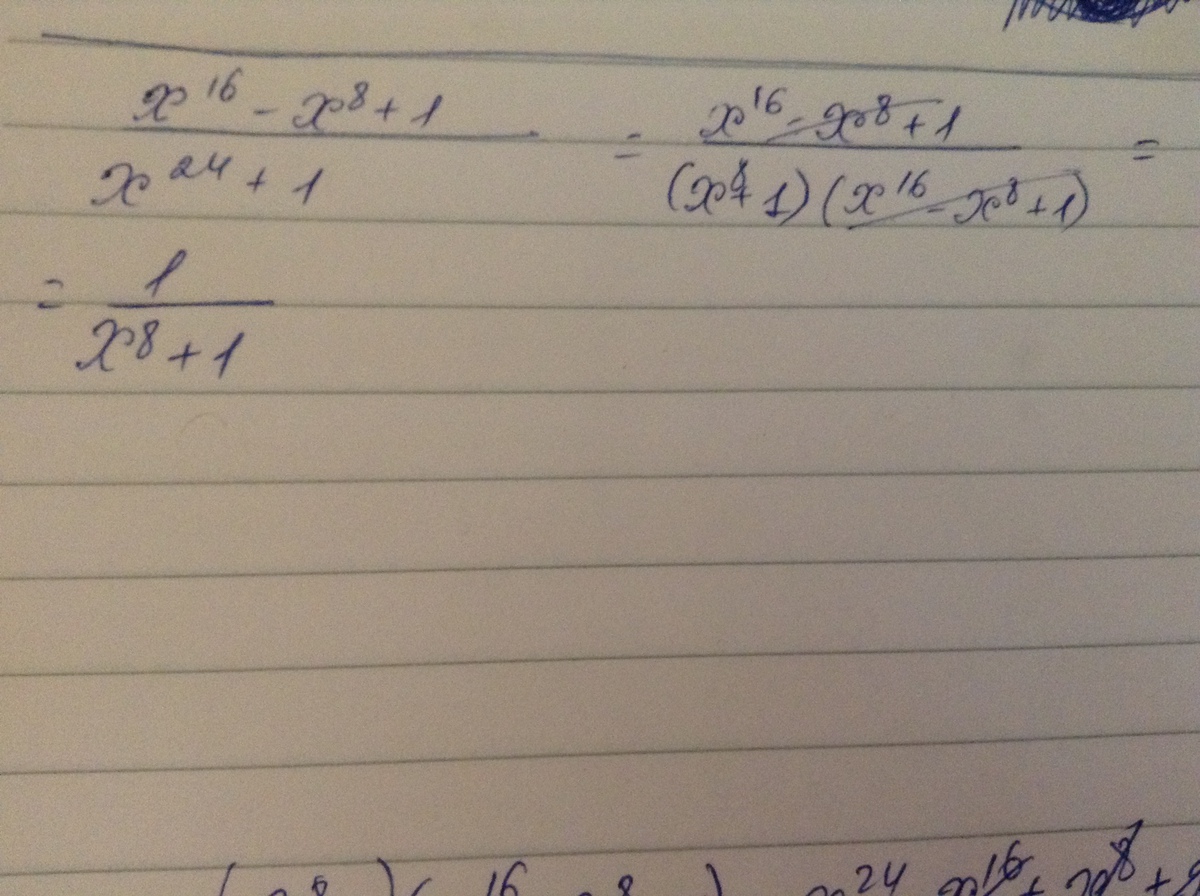 x^16 - x^8 + 1 / x^24 + 1 = x^16 - x^8 + 1 / (x^8 + 1)(x^16 - x^8 + 1) =
= 1 / x^8 + 1